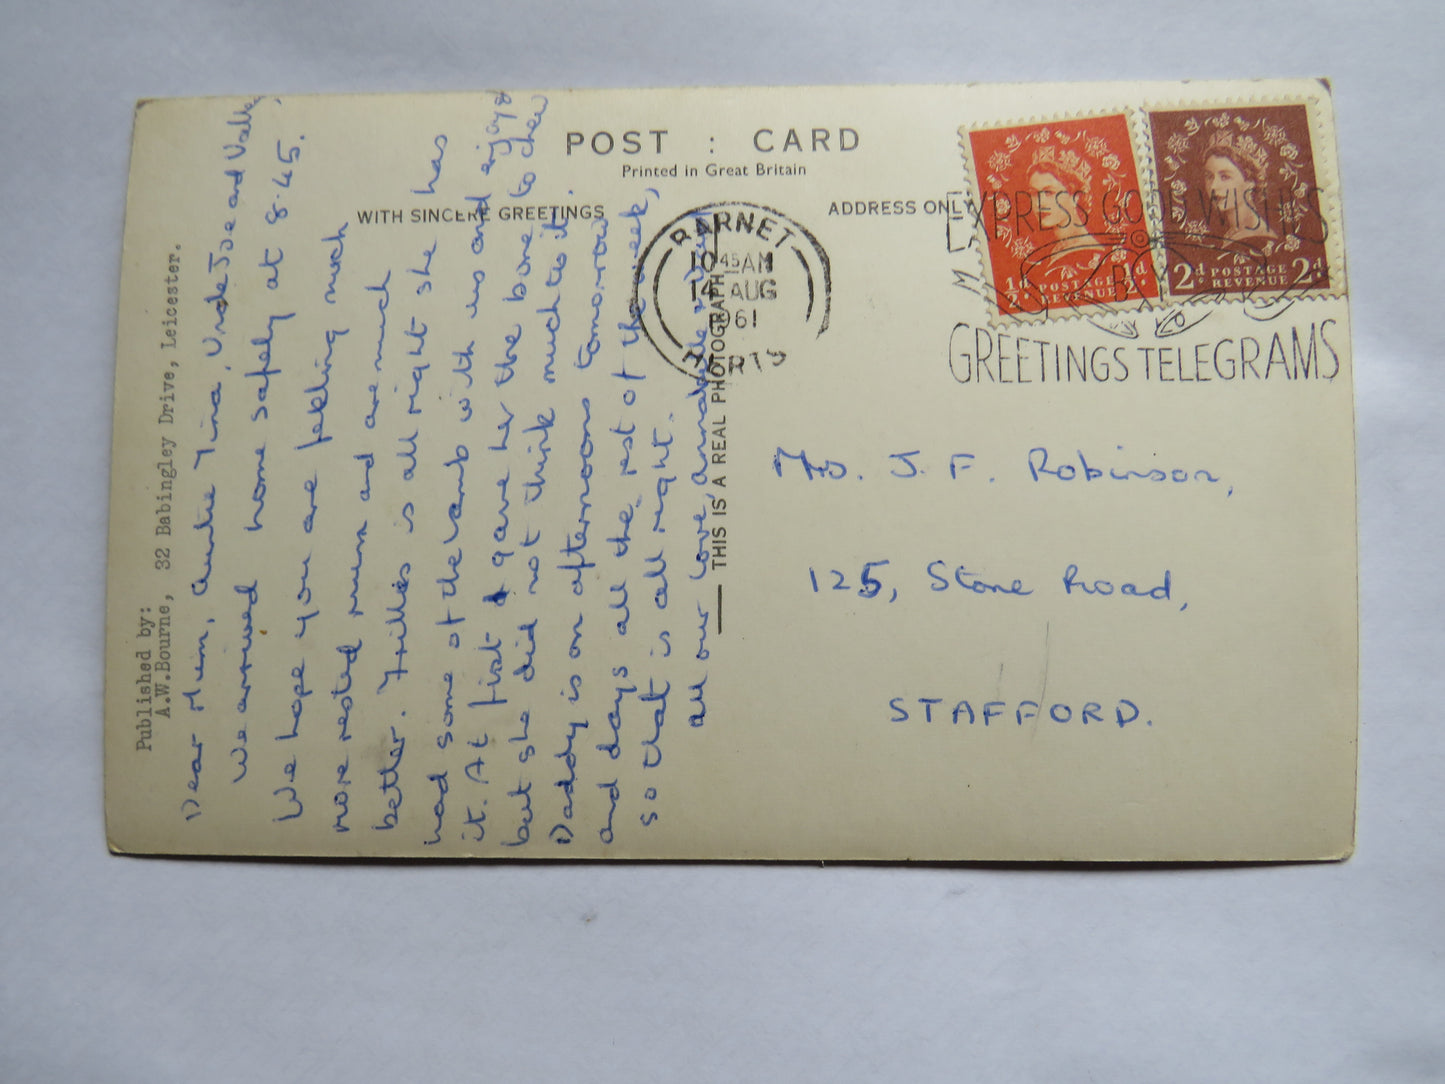 POST : CARD
Printed in Great Britain
WITH SINCERE GREETINGS
ADDRESS ONLY
BARNET
10 45 AM
14 AUG
1961
HERTS
EXPRESS GOOD WISHES
BY
GREETINGS TELEGRAMS
½d POSTAGE REVENUE ½d
2d POSTAGE REVENUE 2d
Published by:
A.W.Bourne, 32 Babingley Drive, Leicester.
Dear Mum, Auntie Tina, Uncle Joe and Valley,
We arrived home safely at 8.45.
We hope you are feeling much
more rested mum and are much
better. Trilles is all right she has
had some of the lamb with us and enjoyed
it. At first I gave her the bone to chew
but she did not think much to it.
Daddy is on afternoons tomorrow
and days all the rest of the week,
so that is all right.
All our love, Annabelle &
THIS IS A REAL PHOTOGRAPH
To. J. F. Robinson,
125, Stone Road,
STAFFORD.